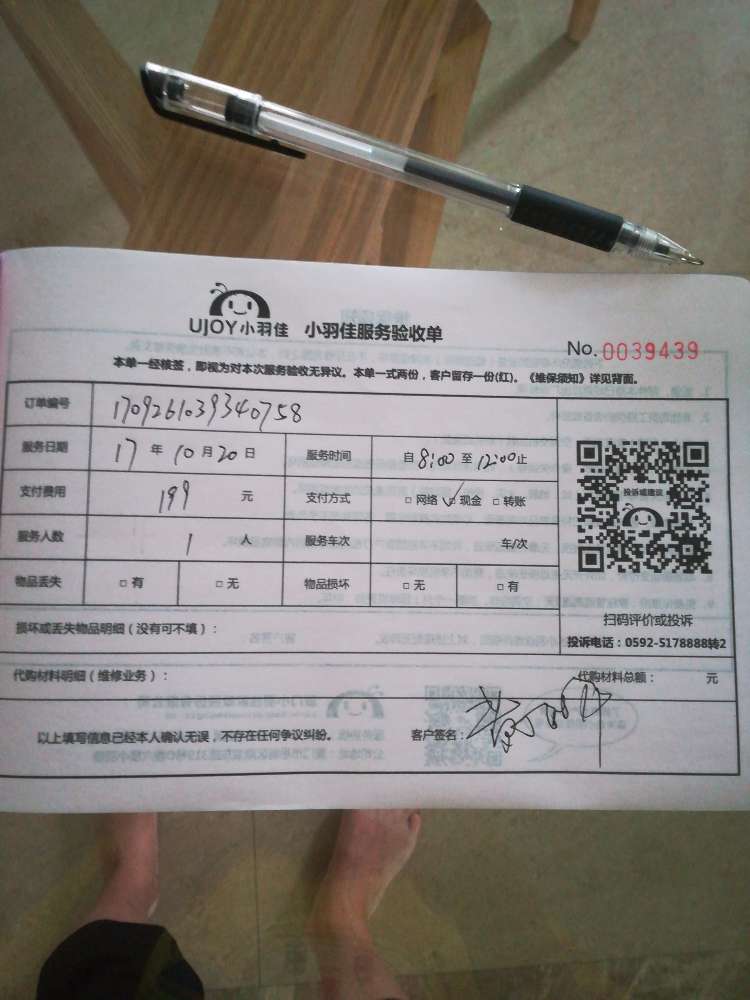 UJOY小羽佳 小羽佳服务验收单
No. 0039439
本单一经核签，即视为对本次服务验收无异议。本单一式两份，客户留存一份(红)。《维保须知》详见背面。
订单编号 1709261039340758
服务日期 17 年 10 月 20 日 服务时间 自 8:00 至 12:00 止
支付费用 199 元 支付方式 □ 网络 ☑ 现金 □ 转账
投诉或建议
服务人数 1 人 服务车次 车/次
物品丢失 □ 有 □ 无 物品损坏 □ 无 □ 有
扫码评价或投诉
损坏或丢失物品明细（没有可不填）：
投诉电话：0592-5178888转2
代购材料明细（维修业务）： 代购材料总额： 元
以上填写信息已经本人确认无误，不存在任何争议纠纷。 客户签名：